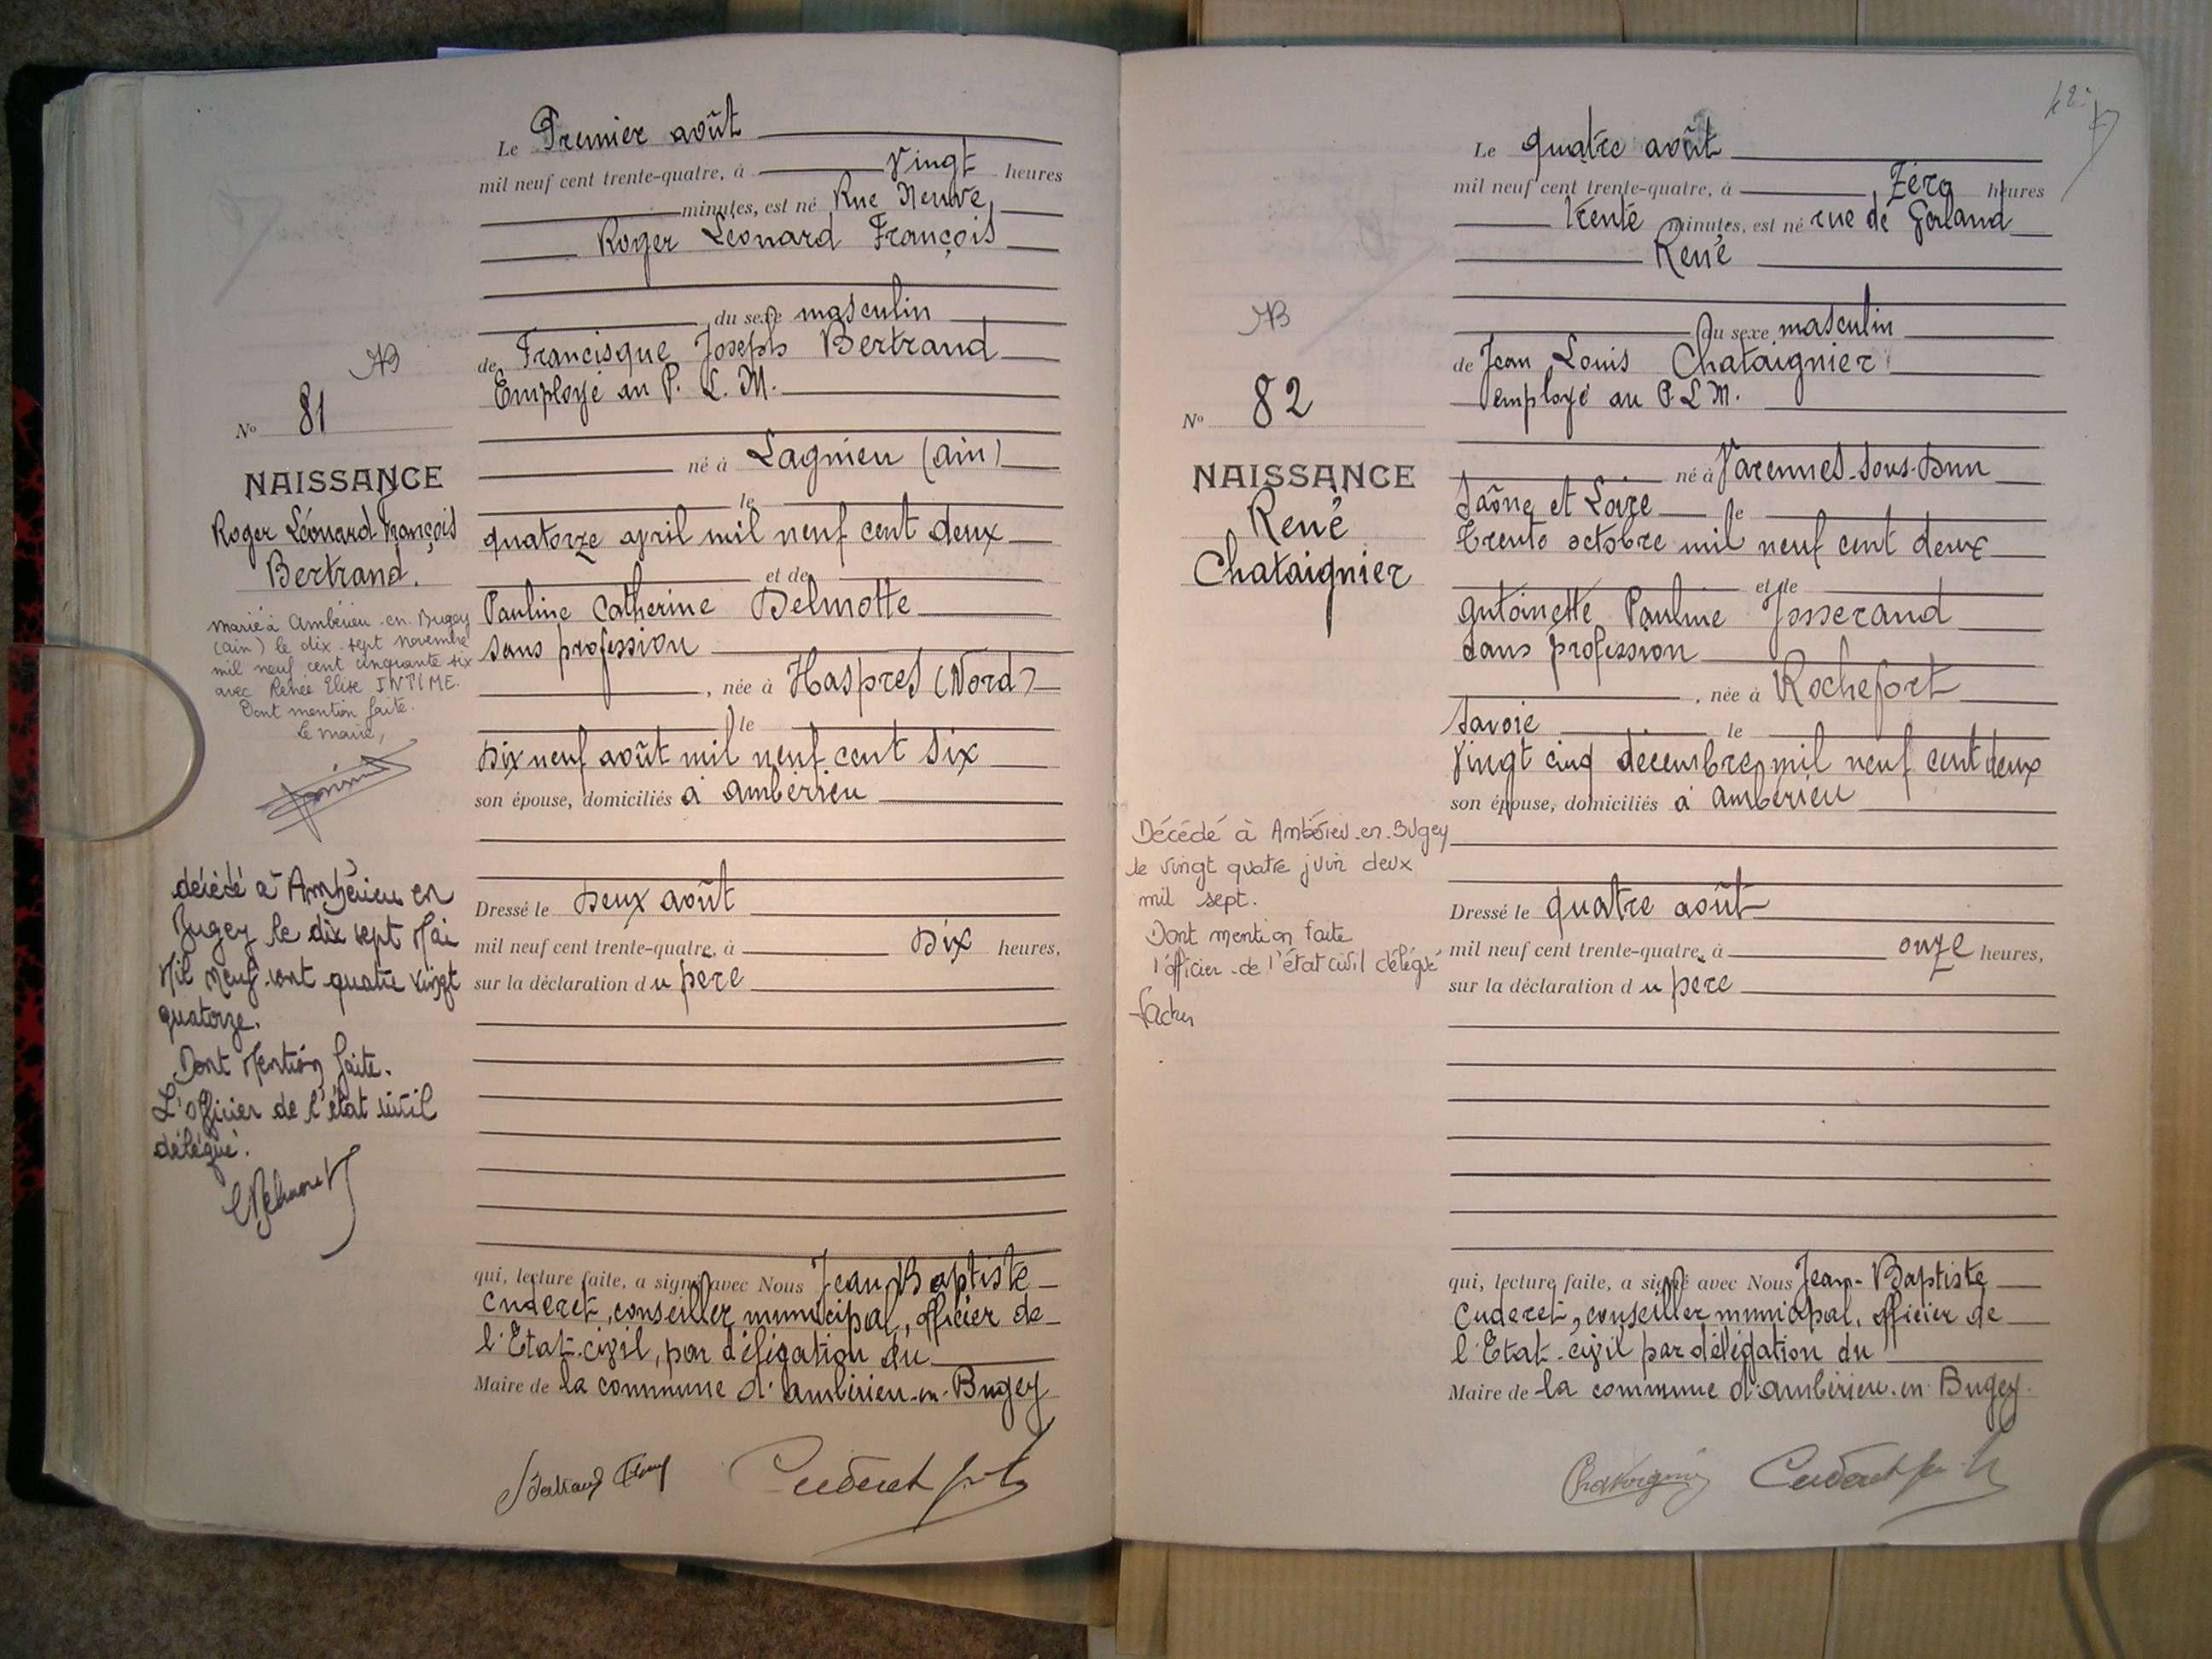 Le Premier août
mil neuf cent trente-quatre, à Vingt heures
minutes, est né Rue Neuve,
Roger Léonard François
du sexe masculin
de Francisque Joseph Bertrand
Employé au P. L. M.
né à Lagnieu (ain)
le
quatorze april mil neuf cent deux
et de
Pauline Catherine Delmotte
sans profession
, née à Haspres (Nord)
le
dix neuf août mil neuf cent six
son épouse, domiciliés à ambérieu
Dressé le Deux août
mil neuf cent trente-quatre, à Dix heures,
sur la déclaration du père
qui, lecture faite, a signé avec Nous Jean Baptiste
Cuderet, conseiller municipal, officier de
l'Etat-civil, par délégation du
Maire de la commune d'ambérieu-en-Bugey
NB
No 81
NAISSANCE
Roger Léonard François
Bertrand.
marié à Ambérieu-en-Bugey
(ain) le dix-sept novembre
mil neuf cent cinquante six
avec Renée Elise INTIME.
Dont mention faite.
Le maire,
décédé à Ambérieu en
Bugey le dix sept Mai
Mil neuf cent quatre vingt
quatorze.
Dont Mention faite.
L'officier de l'état civil
délégué.
Cuderet
Le quatre août
mil neuf cent trente-quatre, à Zéro heures
trente minutes, est né rue de Gerland
René
du sexe masculin
de Jean Louis Chataignier
employé au P.L.M.
né à Varennes-sous-Dun
Saône et Loire le
trente octobre mil neuf cent deux
et de
antoinette Pauline Josserand
sans profession
, née à Rochefort
Savoie le
Vingt cinq décembre mil neuf cent deux
son épouse, domiciliés à ambérieu
Dressé le quatre août
mil neuf cent trente-quatre, à onze heures,
sur la déclaration du père
qui, lecture faite, a signé avec Nous Jean-Baptiste
Cuderet, conseiller municipal, officier de
l'Etat-civil par délégation du
Maire de la commune d'ambérieu-en-Bugey.
Cuderet
NB
No 82
NAISSANCE
René
Chataignier
Décédé à Ambérieu-en-Bugey
le vingt quatre juin deux
mil sept.
Dont mention faite
l'officier de l'état civil délégué